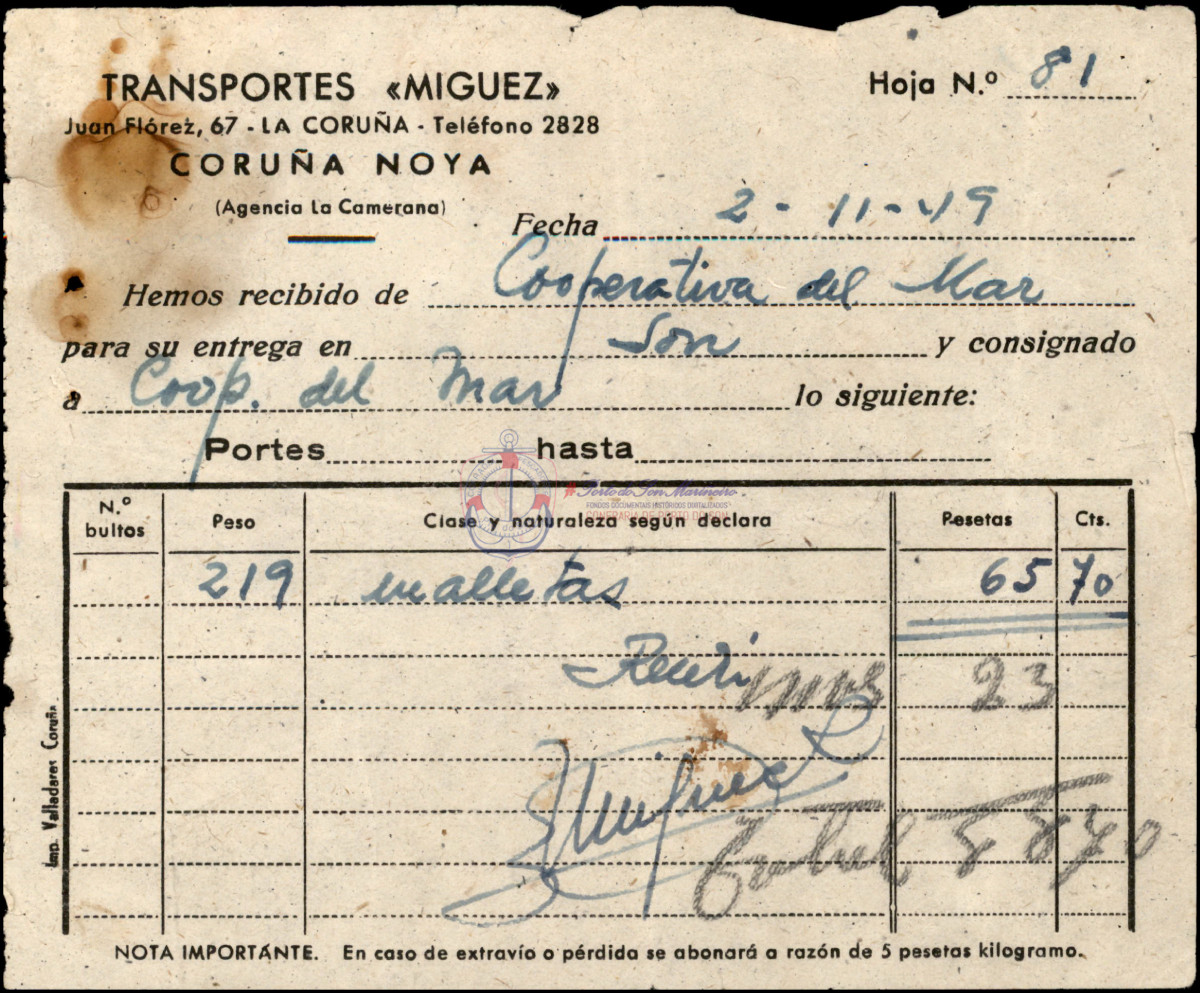 TRANSPORTES «MIGUEZ»
Hoja N.º 81
Juan Flórez, 67 - LA CORUÑA - Teléfono 2828
CORUÑA NOYA
(Agencia La Camerana)
Fecha 2-11-49
Hemos recibido de Cooperativa del Mar
para su entrega en Son y consignado
a Coop. del Mar lo siguiente:
Portes hasta
#Porto do Son Marineiro
FONDOS DOCUMENTAIS HISTÓRICOS DIXITALIZADOS
CONFRARÍA DE PORTO DO SON
N.º bultos Peso Clase y naturaleza según declara Pesetas Cts.
219 malletas 65 70
Recibí
23
Miguez
Total 8870
Imp. Valladares Coruña
NOTA IMPORTANTE. En caso de extravío o pérdida se abonará a razón de 5 pesetas kilogramo.